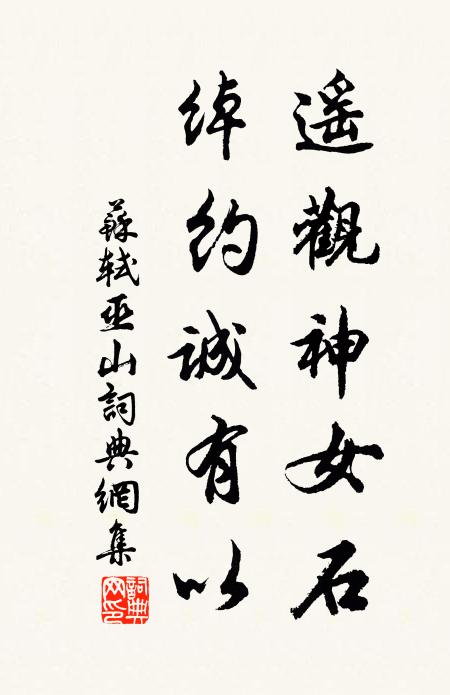 遥觀神女石
綽約誠有以
蘇軾巫山詞典網集
詞典網印